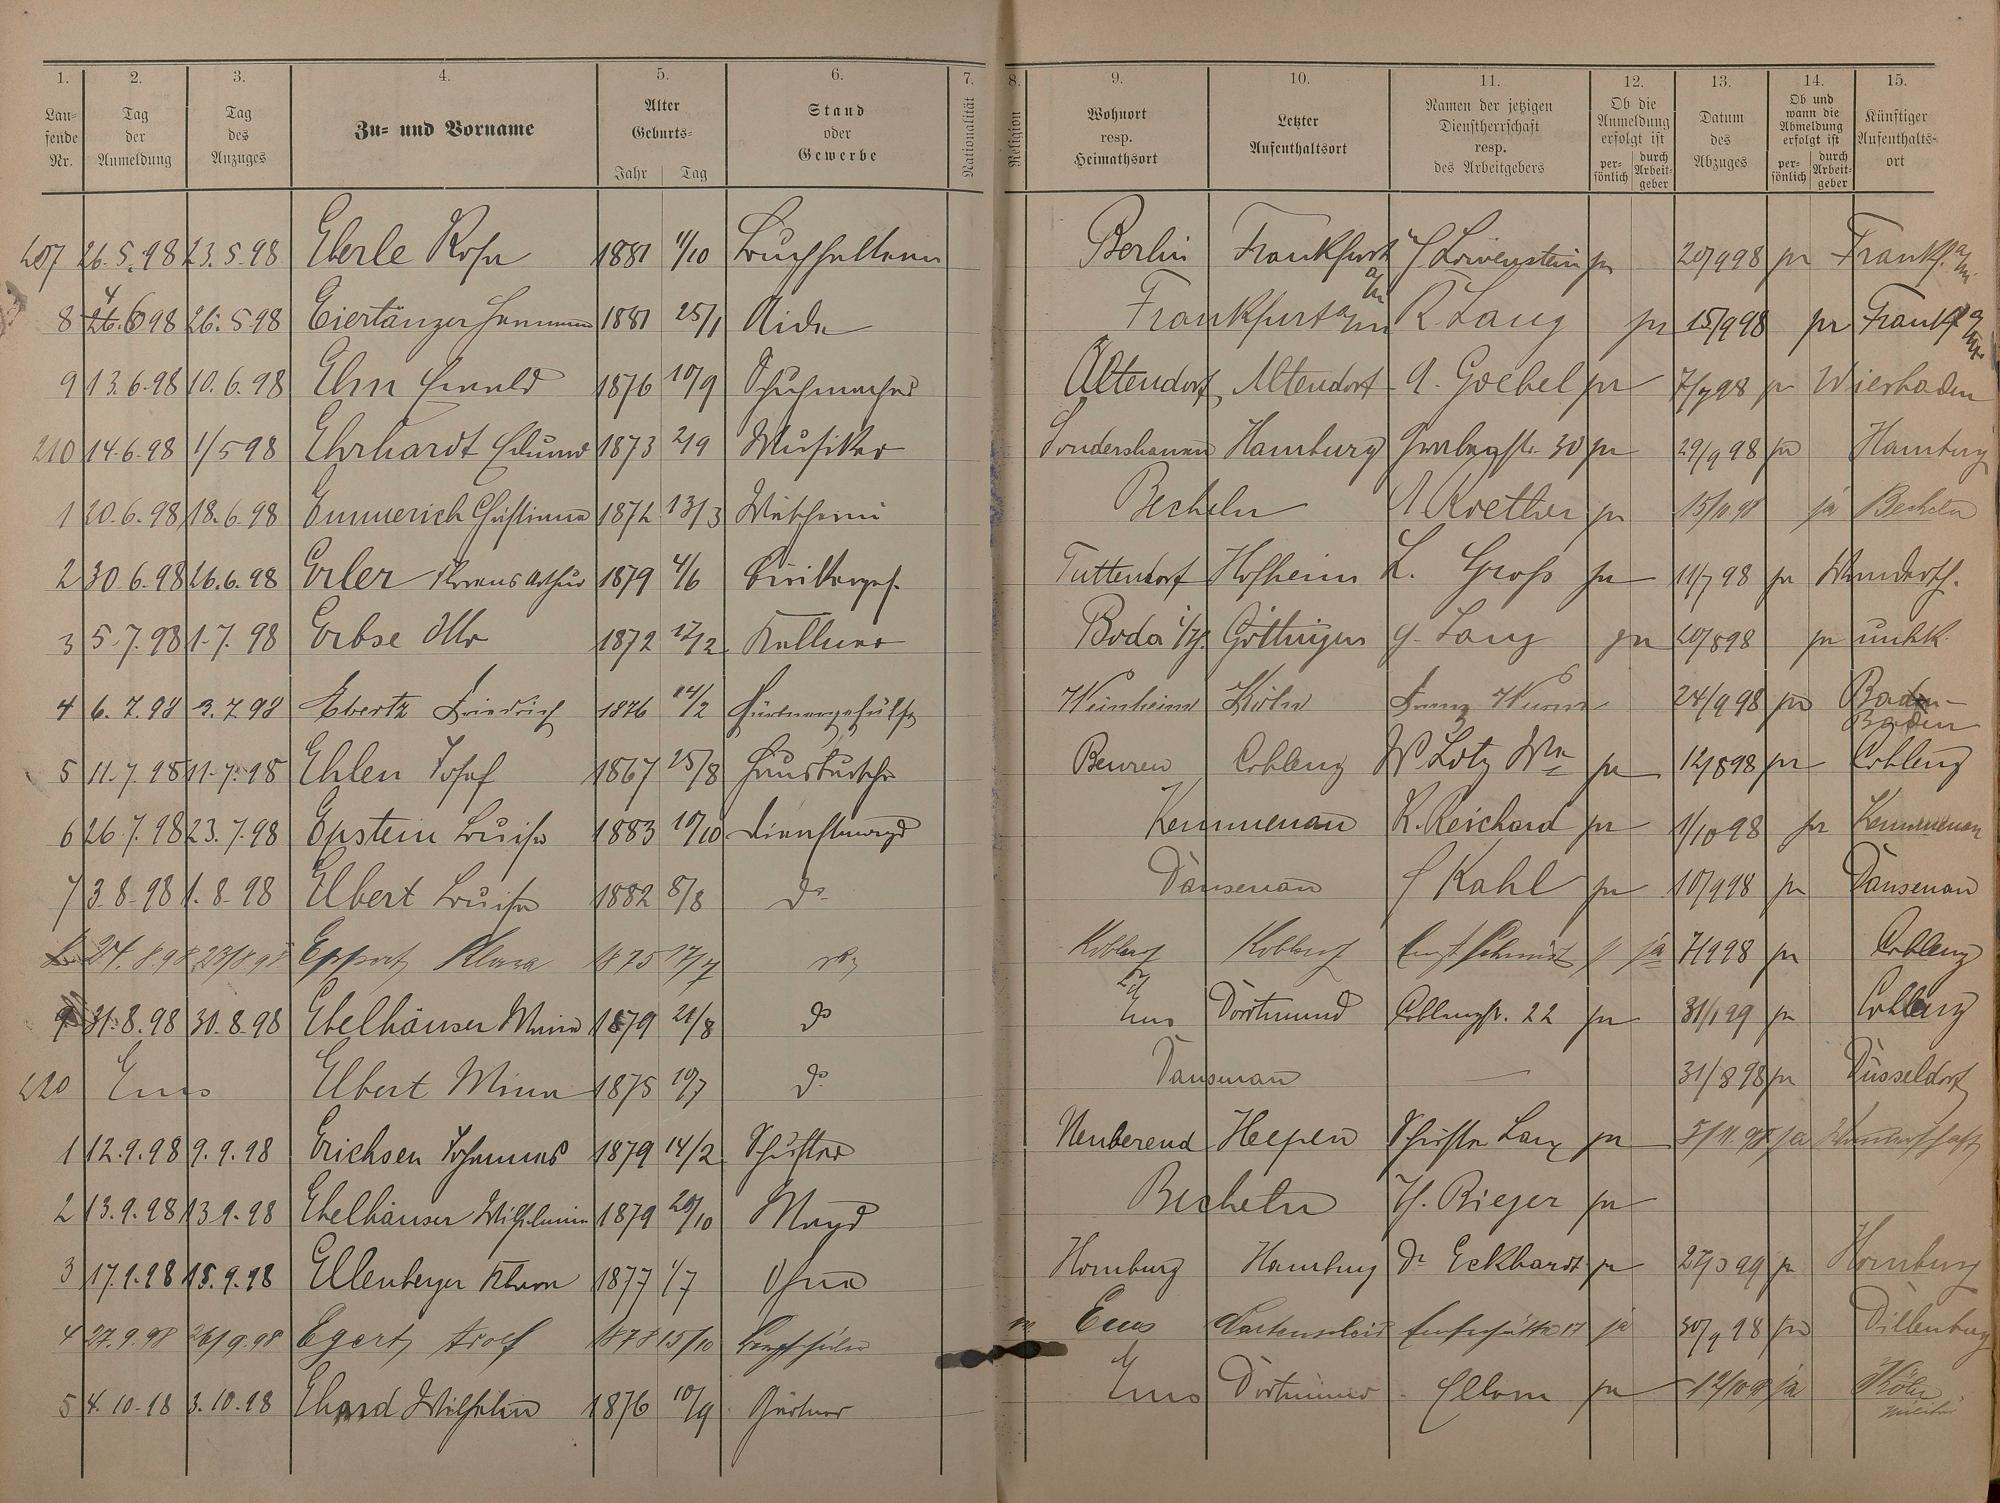 1. 2. 3. 4. 5. 6. 7. 8. 9. 10. 11. 12. 13. 14. 15.
Lau-
fende
Nr.
Tag
der
Anmeldung
Tag
des
Anzuges
Zu- und Vorname
Alter
Geburts-
Jahr Tag
Stand
oder
Gewerbe
Nationalität
Religion
Wohnort
resp.
Heimathsort
Letzter
Aufenthaltsort
Namen der jetzigen
Dienstherrschaft
resp.
des Arbeitgebers
Ob die
Anmeldung
erfolgt ist
per-
sönlich
durch
Arbeit-
geber
Datum
des
Abzuges
Ob und
wann die
Abmeldung
erfolgt ist
per-
sönlich
durch
Arbeit-
geber
Künftiger
Aufenthalts-
ort
207 26.5.98 23.5.98 Eberle Rosa 1881 4/10 Buchhalterin Berlin Frankfurt a/M Löwenstein pr 20/9 98 pr Frankf. a/M
8 26.5.98 Eiertänzer 1881 25/1 Frankfurt a/M R. Lang pr 15/9 98 pr Frankf a/M
9 13.6.98 10.6.98 Ehn Ewald 1876 10/9 Schuhmacher Altendorf Altendorf A. Goebel pr 7/7 98 pr Wiesbaden
210 14.6.98 1/5 98 Ehrhardt Eduard 1873 2/9 Musiker Sondershausen Hamburg 30 pr 29/9 98 pr Hamburg
1 20.6.98 18.6.98 Emmerich Christiane 1872 13/3 Becheln pr ja Becheln
2 30.6.98 26.6.98 Erler Arthur 1879 4/6 Tuttendorf Hofheim L. Gross pr 11/7 98 pr
3 5.7.98 1.7.98 Erbse Otto 1872 12/2 Kellner Göttingen G. Lang pr 20/8 98 pr unbk.
4 6.7.98 3.7.98 Ebertz Friedrich 1876 14/2 Weinheim Köln Franz 24/9 98 pr Baden-
Baden
5 11.7.98 11.7.98 Ehlen Josef 1867 25/8 Hausbursche Beuren Coblenz W Lotz Ww pr 12/8 98 pr Coblenz
6 26.7.98 23.7.98 Epstein Luise 1883 10/10 Dienstmagd Kemmenau K. Reichard pr 1/10 98 pr Kemmenau
7 3.8.98 1.8.98 Elbert Luise 1882 8/8 do Dausenau Kahl pr 10/9 98 pr Dausenau
24.8.98 23/8 98 Klara 1875 17/7 Koblenz Koblenz Ernst Schmidt ja 7/9 98 pr Coblenz
9 31.8.98 30.8.98 Ebelhäuser Mina 1879 21/8 do Ems Dortmund Coblenzstr. 22 pr 31/1 99 pr Coblenz
220 Ems Elbert Mina 1875 10/7 do Dausenau — 31/8 98 pr Düsseldorf
1 12.9.98 9.9.98 Erichsen Johannes 1879 14/2 Schuster Neuberend Heepen pr 5/11.98 ja Wanderschaft
2 13.9.98 13.9.98 Ebelhäuser Wilhelmine 1879 20/10 Magd Becheln H. Rieger pr
3 17.9.98 15.9.98 Ellenberger 1877 1/7 Homburg Homburg Dr Eckhardt pr pr Homburg
4 27.9.98 26/9.98 Egert Adolf 1878 15/10 Ems Wattenscheid ja 30/9 98 pr Dillenburg
5 4.10.98 3.10.98 Ehard Wilhelm 1876 10/9 Gärtner Ems Dortmund pr ja Köln
Militär